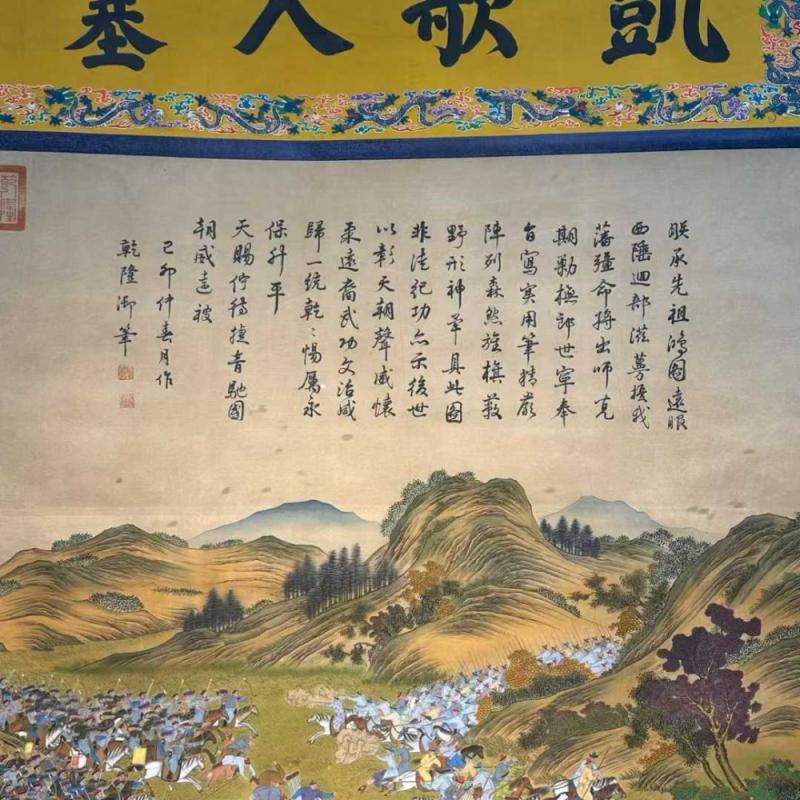 凱歌入塞
朕承先祖鴻圖遠服
西陲迴部滋蔓擾我
藩疆命將出師克
期勦撫郎世寧奉
旨寫實用筆精嚴
陣列森然旌旗蔽
野形神畢具此圖
非徒紀功亦示後世
以彰天朝聲威懷
柔遠裔武功文治咸
歸一統乾乾惕厲永
保升平
天賜佇犄捷音馳圖
朝威遠被
己卯仲春月作
乾隆御筆